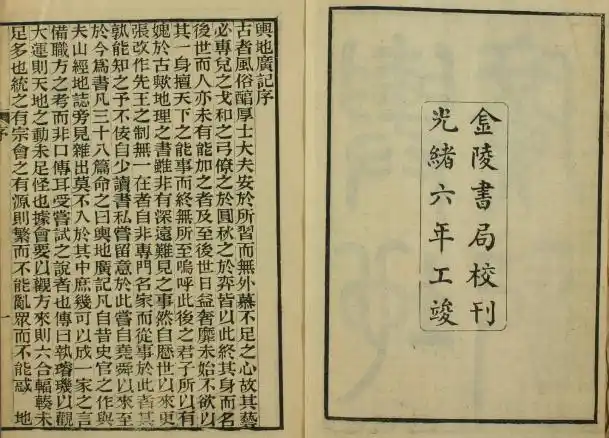 金陵書局校刊
光緒六年工竣
輿地廣記序
古者風俗醕厚士大夫安於所習而無外慕不足之心故其藝
必專兒之戈和之弓僚之於圓秋之於弈皆以此終其身而名
後世而人亦未有能加之者及至後世日益奢靡未始不欲以
其一身擅天下之能事而終無所至嗚呼此後之君子所以有
媿於古歟地理之書雖非有深遠難見之事然自厯世以來更
張改作先王之制無一在者自非專門名家而從事於此者其
孰能知之予不佞自少讀書私嘗留意於此嘗自堯舜以來至
於今爲書凡三十八篇命之曰輿地廣記凡自昔史官之作與
夫山經地誌旁見雜出莫不入於其中庶幾可以成一家之言
備職方之考而非口傳耳受嘗試之說者也傳曰執璿璣以觀
大運則天地之動未足怪也據會要以觀方來則六合輻輳未
足多也統之有宗會之有源則繁而不能亂眾而不能惑 地
序 一